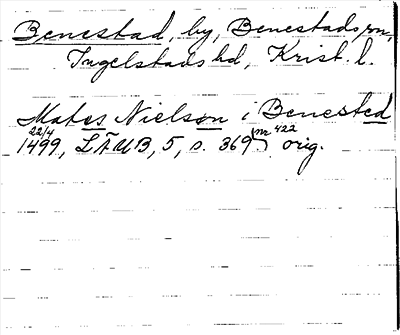 Benestad, by, Benestads sn,
Ingelstads hd, Krist. l.
Mates Nielsøn i Benested
22/4 1499, LÄUB, 5, s. 369 nr 422 orig.